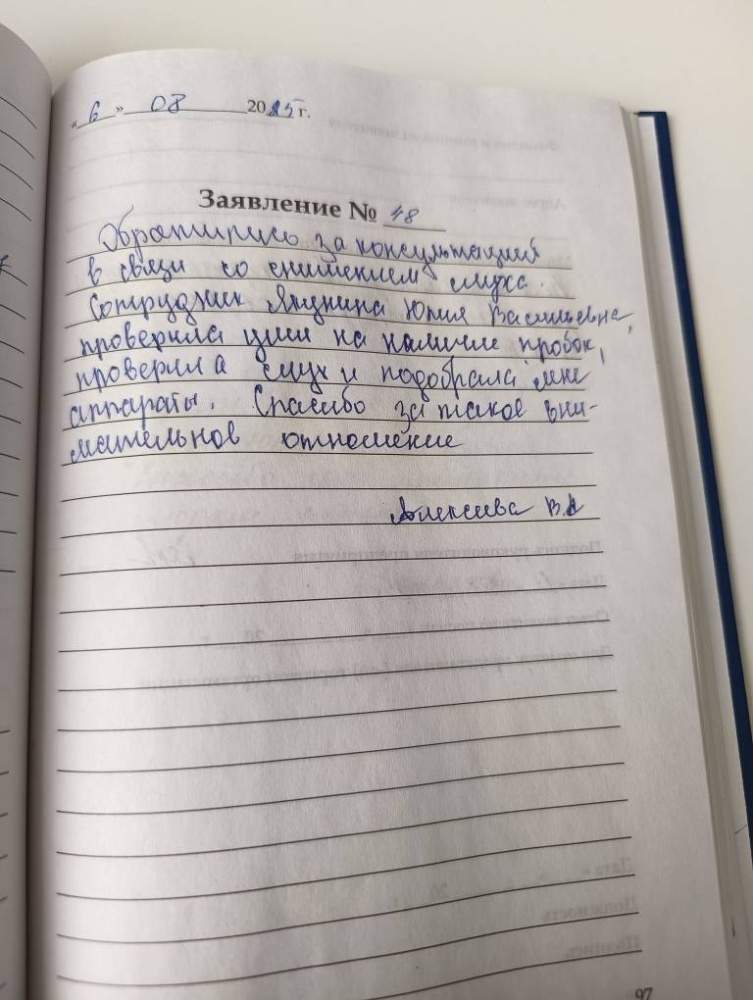 « 6 » 08 2025 г.
Заявление № 48
Обратились за консультацией
в связи со снижением слуха.
Сотрудник Якунина Юлия Васильевна,
проверила уши на наличие пробок,
проверила слух и подобрала мне
аппараты. Спасибо за такое вни-
мательное отношение
Алексеева В.А
97